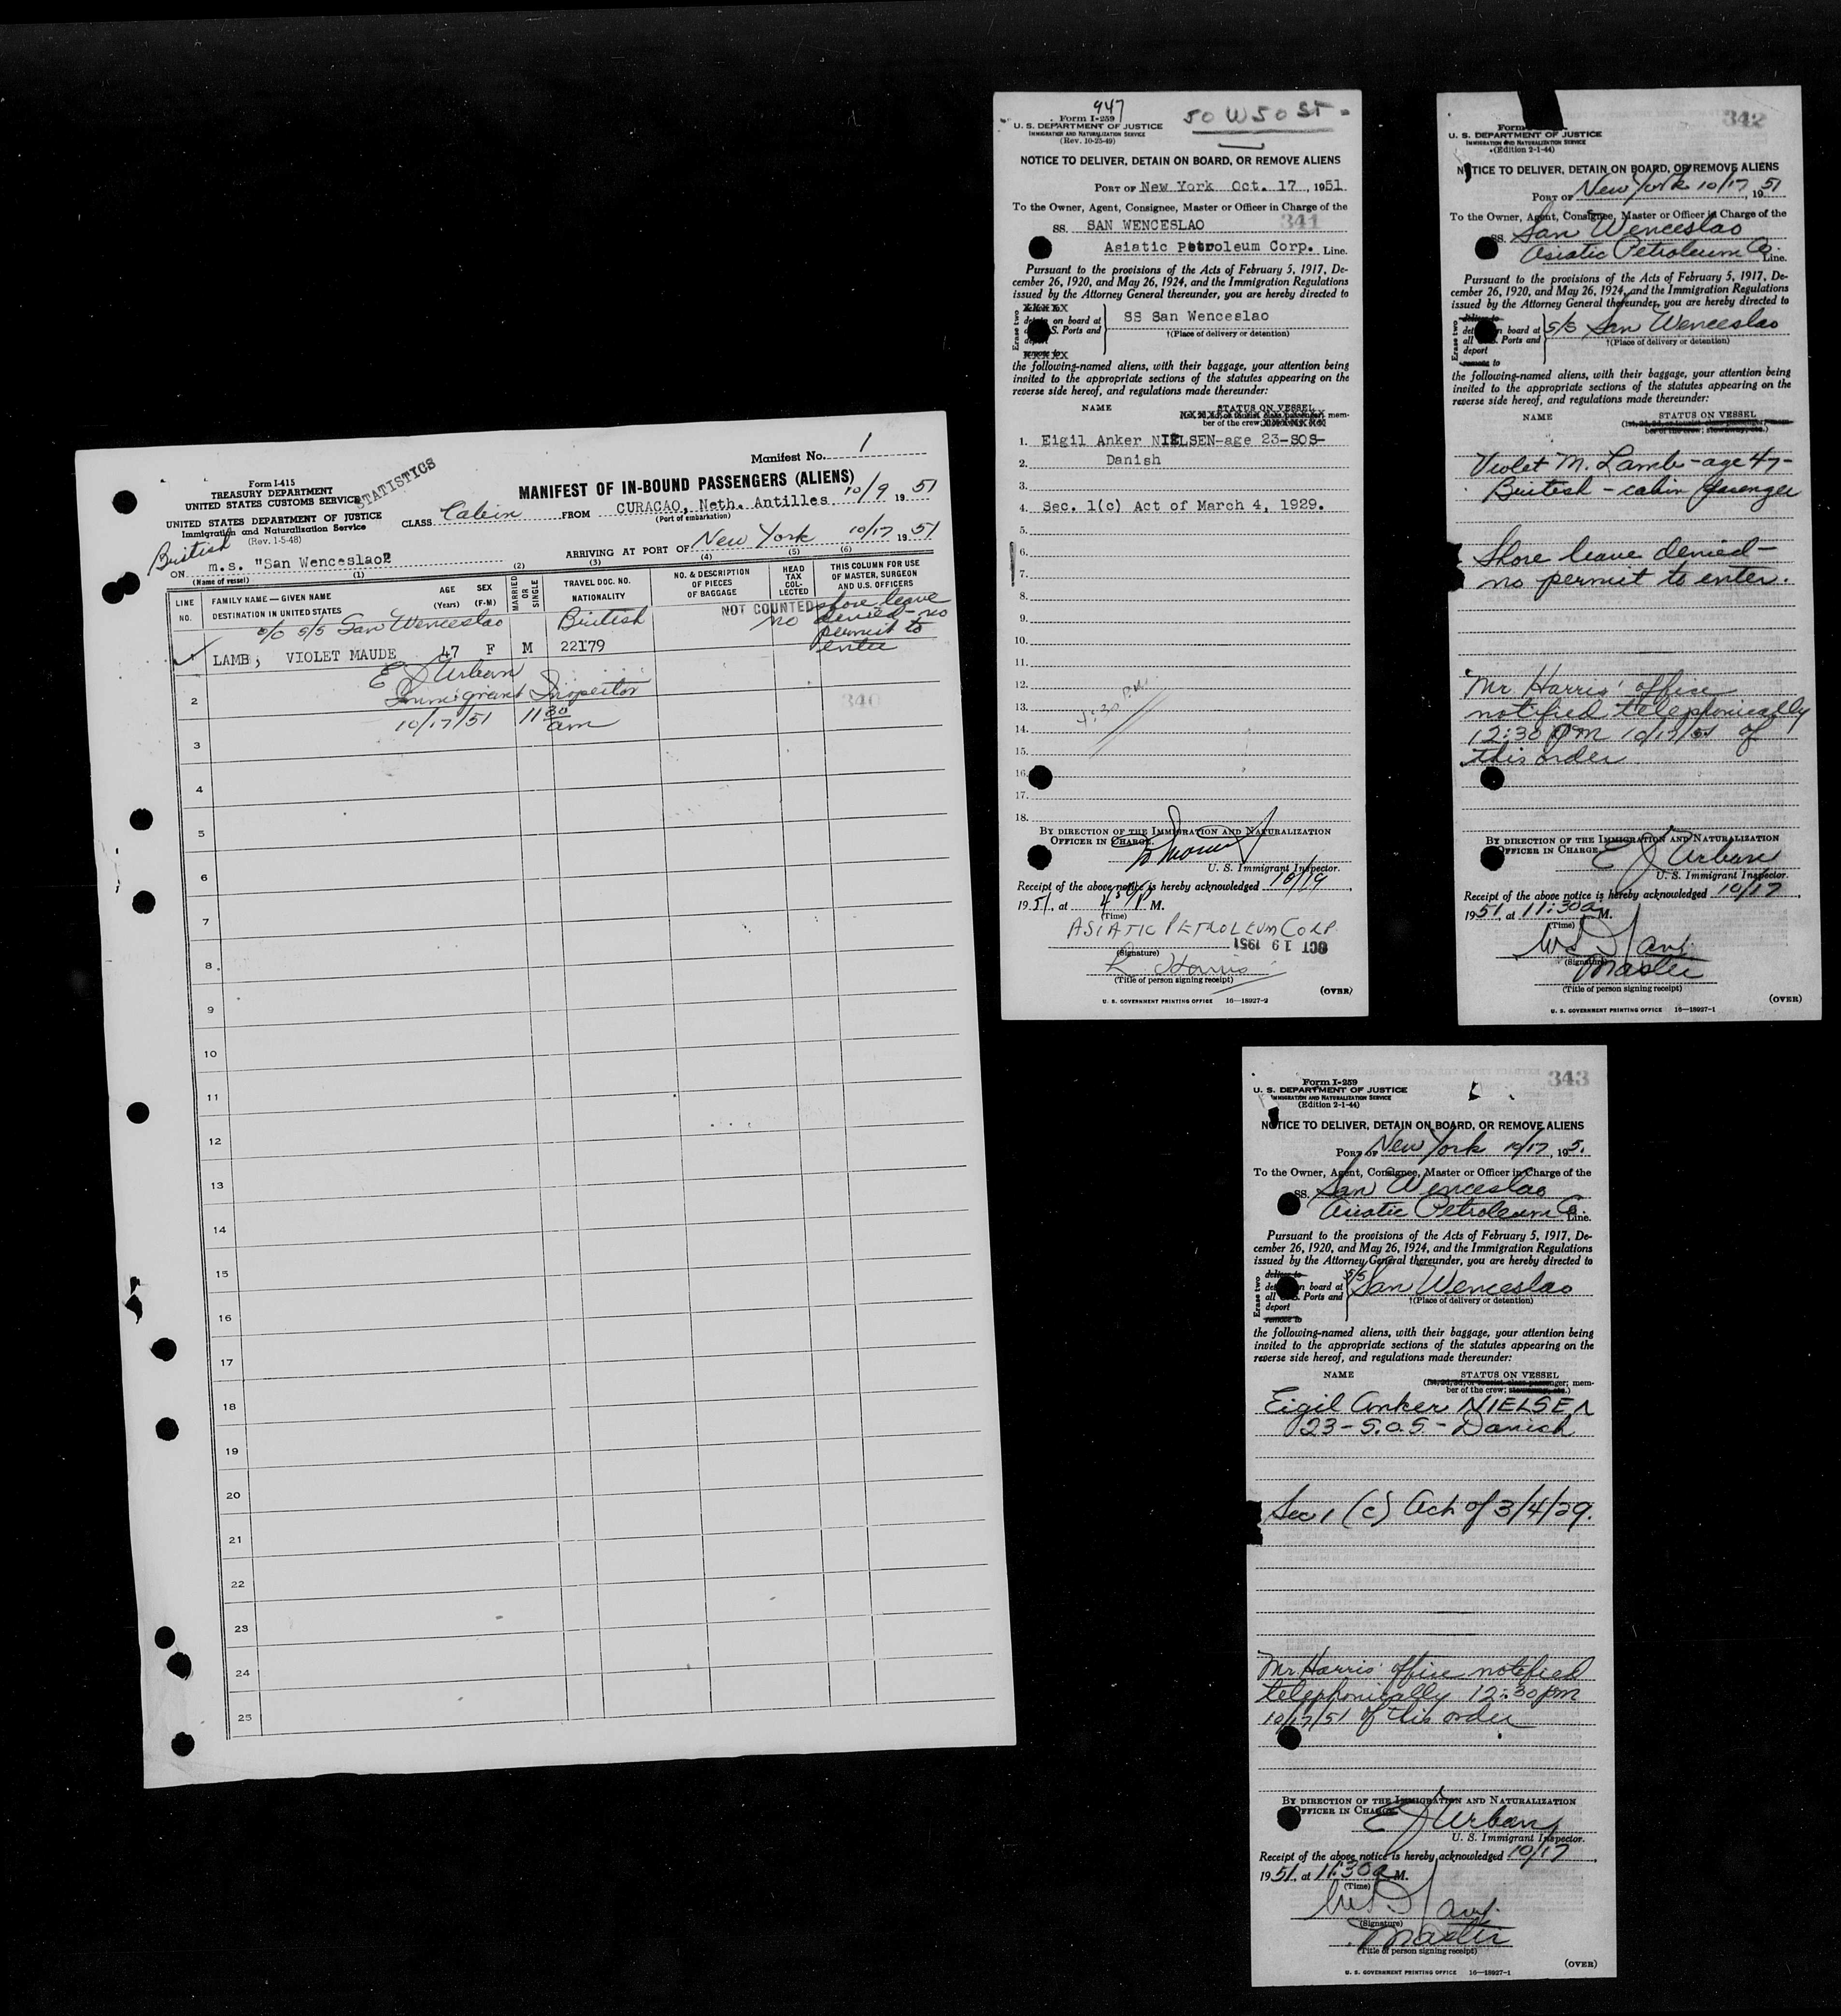 Manifest No. 1
Form I-415
TREASURY DEPARTMENT
UNITED STATES CUSTOMS SERVICE
STATISTICS
UNITED STATES DEPARTMENT OF JUSTICE
Immigration and Naturalization Service
(Rev. 1-5-48)
MANIFEST OF IN-BOUND PASSENGERS (ALIENS)
CLASS Cabin FROM CURACAO, Neth. Antilles 10/9 1951
(Port of embarkation)
British
ON m.s. "San Wenceslao"
(Name of vessel)
ARRIVING AT PORT OF New York 10/17 1951
(1) (2) (3) (4) (5) (6)
LINE NO.
FAMILY NAME — GIVEN NAME
DESTINATION IN UNITED STATES
AGE (Years)
SEX (F-M)
MARRIED OR SINGLE
TRAVEL DOC. NO.
NATIONALITY
NO. & DESCRIPTION OF PIECES OF BAGGAGE
HEAD TAX COLLECTED
THIS COLUMN FOR USE OF MASTER, SURGEON AND U.S. OFFICERS
c/o S/S San Wenceslao British NOT COUNTED
no
shore leave
denied - no
permit to
enter
1 LAMB, VIOLET MAUDE 47 F M 22179
E J Urban
Immigrant Inspector
2
340
10/17/51 11 30 am
3
4
5
6
7
8
9
10
11
12
13
14
15
16
17
18
19
20
21
22
23
24
25
947
50 W 50 ST
Form I-259
U. S. DEPARTMENT OF JUSTICE
IMMIGRATION AND NATURALIZATION SERVICE
(Rev. 10-25-49)
NOTICE TO DELIVER, DETAIN ON BOARD, OR REMOVE ALIENS
PORT OF New York Oct. 17, 1951
To the Owner, Agent, Consignee, Master or Officer in Charge of the
SS. SAN WENCESLAO 341
Asiatic Petroleum Corp. Line.
Pursuant to the provisions of the Acts of February 5, 1917, De-
cember 26, 1920, and May 26, 1924, and the Immigration Regulations
issued by the Attorney General thereunder, you are hereby directed to
Erase two
on board at
S. Ports and
SS San Wenceslao
†(Place of delivery or detention)
the following-named aliens, with their baggage, your attention being
invited to the appropriate sections of the statutes appearing on the
reverse side hereof, and regulations made thereunder:
NAME STATUS ON VESSEL
mem-
ber of the crew
1. Eigil Anker NIELSEN-age 23-SOS-
2. Danish
3.
4. Sec. 1(c) Act of March 4, 1929.
5.
6.
7.
8.
9.
10.
11.
12.
13. 4:30 P.M.
14.
15.
16.
17.
18.
BY DIRECTION OF THE IMMIGRATION AND NATURALIZATION
OFFICER IN CHARGE.
U. S. Immigrant Inspector.
Receipt of the above notice is hereby acknowledged 10/19,
1951, at 4 30 P M.
(Time)
ASIATIC PETROLEUM CORP.
OCT 19 1951
(Signature)
L Harris
(Title of person signing receipt)
(OVER)
U. S. GOVERNMENT PRINTING OFFICE 16—18927-2
342
Form
U. S. DEPARTMENT OF JUSTICE
IMMIGRATION AND NATURALIZATION SERVICE
(Edition 2-1-44)
NOTICE TO DELIVER, DETAIN ON BOARD, OR REMOVE ALIENS
PORT OF New York 10/17, 1951
To the Owner, Agent, Consignee, Master or Officer in Charge of the
SS. San Wenceslao
Asiatic Petroleum Co. Line.
Pursuant to the provisions of the Acts of February 5, 1917, De-
cember 26, 1920, and May 26, 1924, and the Immigration Regulations
issued by the Attorney General thereunder, you are hereby directed to
Erase two
deliver to
on board at
all Ports and
deport
remove to
S/S San Wenceslao
†(Place of delivery or detention)
the following-named aliens, with their baggage, your attention being
invited to the appropriate sections of the statutes appearing on the
reverse side hereof, and regulations made thereunder:
NAME STATUS ON VESSEL
(1st, 2d, 3d, or tourist class passenger; mem-
ber of the crew; stowaway, etc.)
Violet M. Lamb - age 47 -
British - cabin passenger
Shore leave denied -
no permit to enter.
Mr Harris' office
notified telephonically
12:30 pm 10/17/51 of
this order
BY DIRECTION OF THE IMMIGRATION AND NATURALIZATION
OFFICER IN CHARGE.
E J Urban
U. S. Immigrant Inspector.
Receipt of the above notice is hereby acknowledged 10/17,
1951, at 11:30 a M.
(Time)
(Signature)
Master
(Title of person signing receipt)
(OVER)
U. S. GOVERNMENT PRINTING OFFICE 16—18927-1
343
Form I-259
U. S. DEPARTMENT OF JUSTICE
IMMIGRATION AND NATURALIZATION SERVICE
(Edition 2-1-44)
NOTICE TO DELIVER, DETAIN ON BOARD, OR REMOVE ALIENS
PORT OF New York 10/17, 195.
To the Owner, Agent, Consignee, Master or Officer in Charge of the
SS. San Wenceslao
Asiatic Petroleum Co. Line.
Pursuant to the provisions of the Acts of February 5, 1917, De-
cember 26, 1920, and May 26, 1924, and the Immigration Regulations
issued by the Attorney General thereunder, you are hereby directed to
Erase two
deliver to
on board at
all Ports and
deport
remove to
S/S San Wenceslao
†(Place of delivery or detention)
the following-named aliens, with their baggage, your attention being
invited to the appropriate sections of the statutes appearing on the
reverse side hereof, and regulations made thereunder:
NAME STATUS ON VESSEL
(1st, 2d, 3d, or tourist class passenger; mem-
ber of the crew; stowaway, etc.)
Eigil Anker NIELSEN
23 - S.O.S. - Danish
Sec 1 (c) Act of 3/4/29.
Mr Harris' office notified
telephonically 12:30 pm
10/17/51 of this order
BY DIRECTION OF THE IMMIGRATION AND NATURALIZATION
OFFICER IN CHARGE.
E J Urban
U. S. Immigrant Inspector.
Receipt of the above notice is hereby acknowledged 10/17,
1951, at 11:30 a M.
(Time)
(Signature)
Master
(Title of person signing receipt)
(OVER)
U. S. GOVERNMENT PRINTING OFFICE 16—18927-1